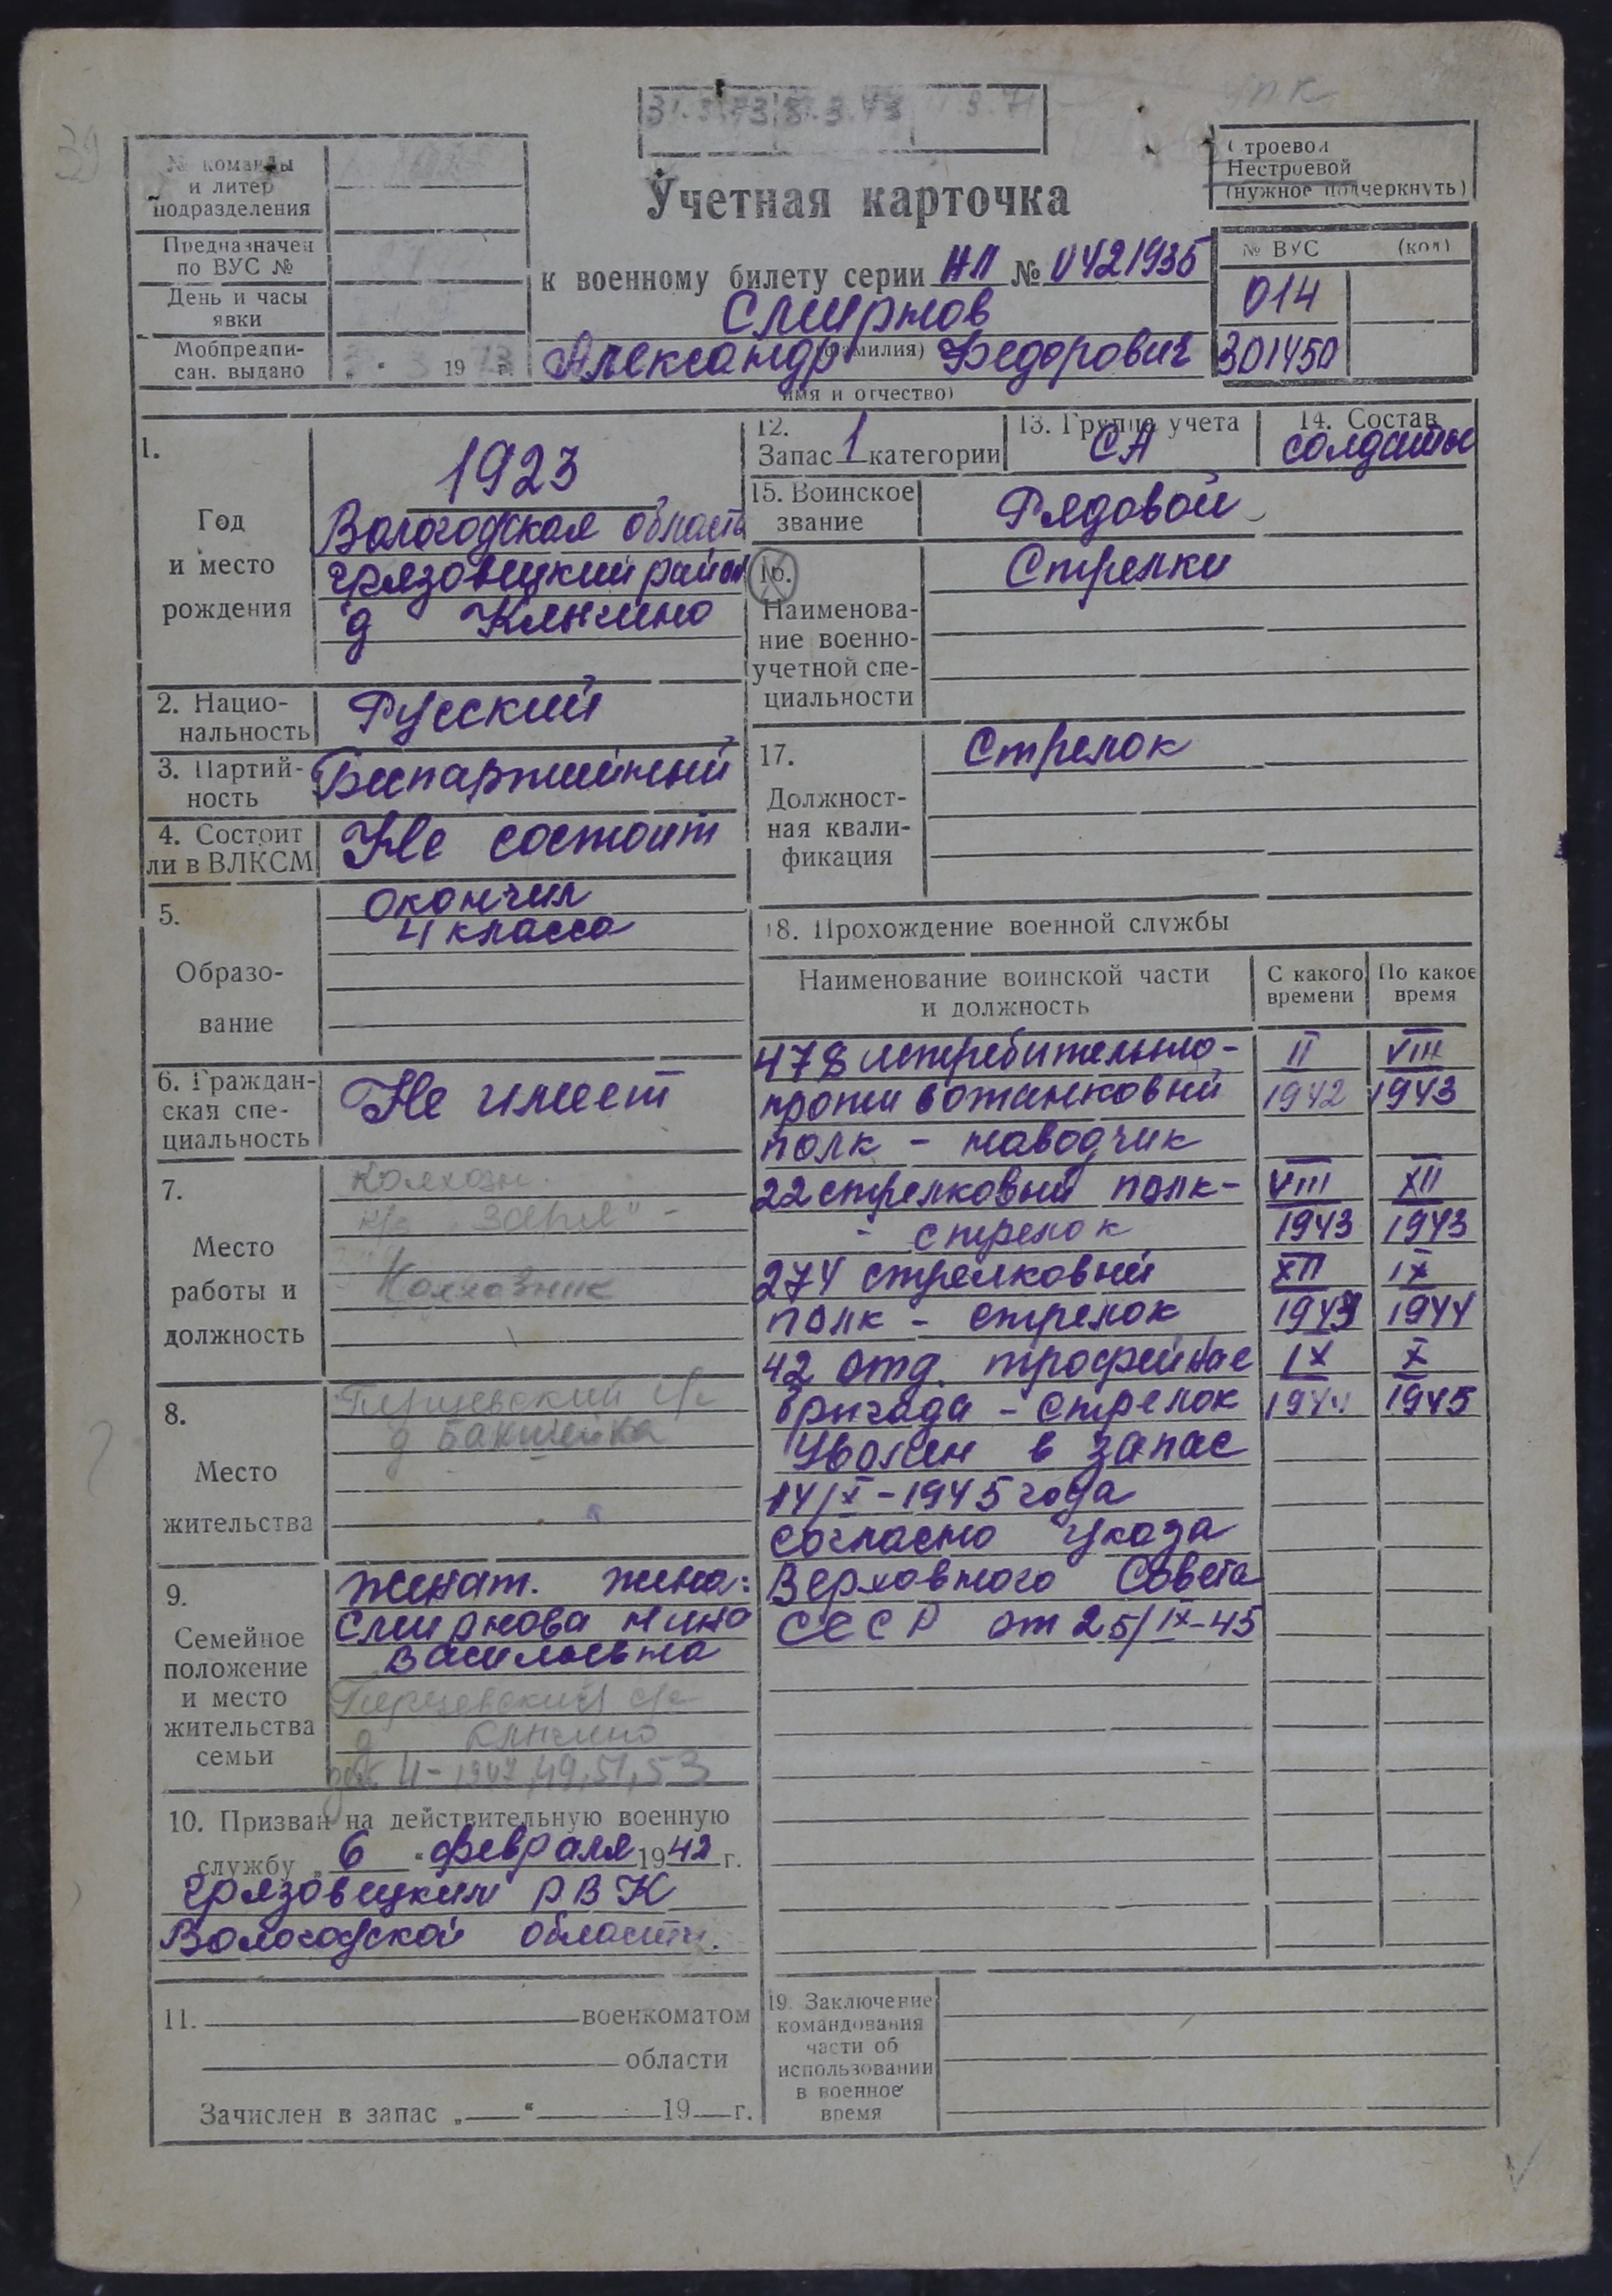 № команды
и литер
подразделения
Предназначен
по ВУС №
День и часы
явки
Мобпредпи-
сан. выдано
3 19 73 г.
Строевой
Нестроевой
(нужное подчеркнуть)
Учетная карточка
к военному билету серии НП № 0421935
Смирнов
(фамилия)
Александр Федорович
имя и отчество)
№ ВУС (код)
014
301450
1.
Год
и место
рождения
1923
Вологодская область
Грязовецкий район
д Клычино
2. Нацио-
нальность
Русский
3. Партий-
ность
Беспартийный
4. Состоит
ли в ВЛКСМ
Не состоит
5.
Образо-
вание
окончил
4 класса
6. Граждан-
ская спе-
циальность
Не имеет
7.
Место
работы и
должность
Колхозн.
к/з "Заря" -
Колхозник
8.
Место
жительства
с/с
д Бакшейка
9.
Семейное
положение
и место
жительства
семьи
женат. жена:
Смирнова Нина
Васильевна
с/с
д Клычино
4 - 1947, 49, 51, 53
10. Призван на действительную военную
службу „ 6 " февраля 1942 г.
Грязовецким РВК
Вологодской области.
11. военкоматом
области
Зачислен в запас „ “ 19 г.
12.
Запас 1 категории
13. Группа учета
СА
14. Состав
солдаты
15. Воинское
звание
Рядовой
16.
Наименова-
ние военно-
учетной спе-
циальности
Стрелки
17.
Должност-
ная квали-
фикация
Стрелок
18. Прохождение военной службы
Наименование воинской части
и должность
С какого
времени
По какое
время
478 истребительно- II VIII
противотанковый 1942 1943
полк - наводчик
22 стрелковый полк- VIII XII
- стрелок 1943 1943
274 стрелковый XII IX
полк - стрелок 1943 1944
42 отд. трофейная IX X
бригада - стрелок 1944 1945
Уволен в запас
14/X-1945 года
согласно указа
Верховного Совета
СССР от 25/IX-45
19. Заключение
командования
части об
использовании
в военное
время